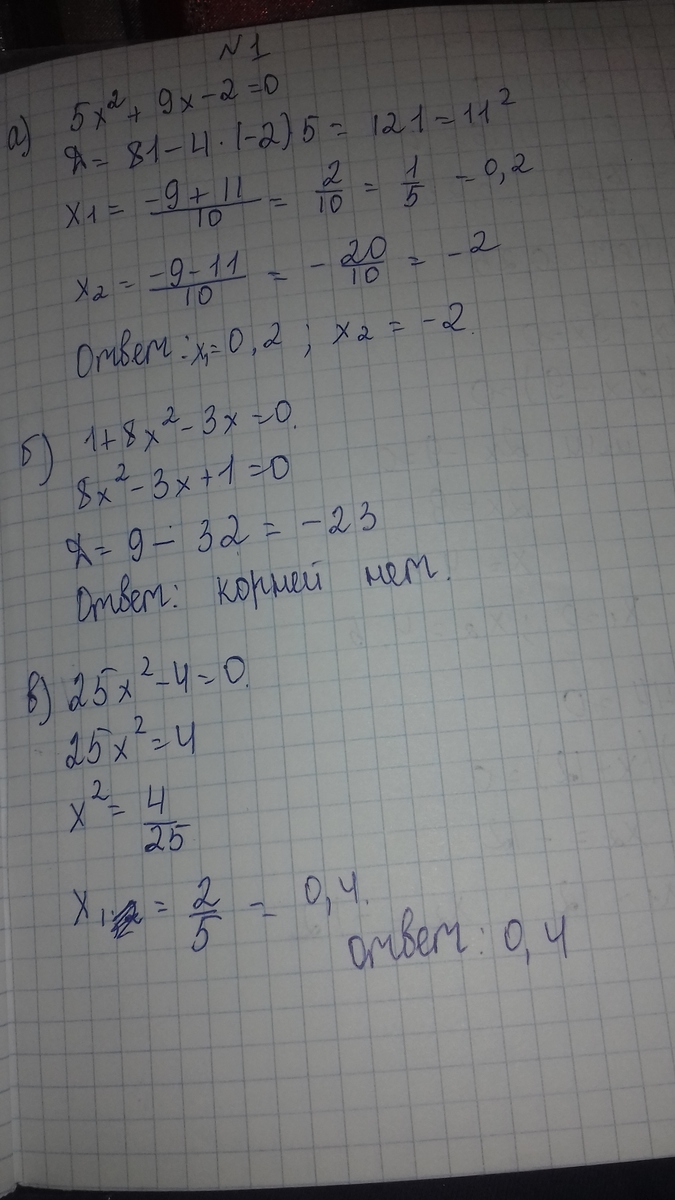 N1
а) 5x² + 9x - 2 = 0
D = 81 - 4 · (-2) 5 = 121 = 11²
x₁ = (-9 + 11)/10 = 2/10 = 1/5 = 0,2
x₂ = (-9 - 11)/10 = - 20/10 = -2
Ответ: x₁ = 0,2 ; x₂ = -2.
б) 1 + 8x² - 3x = 0.
8x² - 3x + 1 = 0
D = 9 - 32 = -23
Ответ: корней нет.
в) 25x² - 4 = 0.
25x² = 4
x² = 4/25
x₁ = 2/5 = 0,4.
Ответ: 0,4